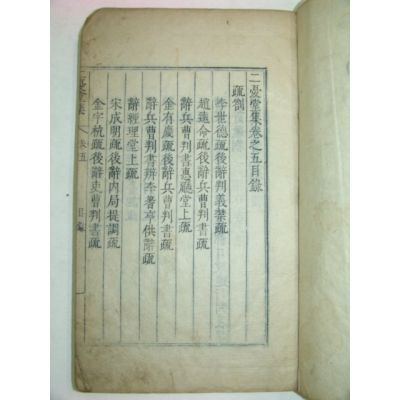 二憂堂集卷之五目錄
疏劄
李世德疏後辭判義禁疏
趙遠命疏後辭兵曹判書疏
辭兵曹判書惠廳堂上疏
金有慶疏後辭兵曹判書疏
辭兵曹判書辨李著亨供辭疏
辭經理堂上疏
宋成明疏後辭內局提調疏
金宇杭疏後辭吏曹判書疏
二憂堂集 卷五 目錄